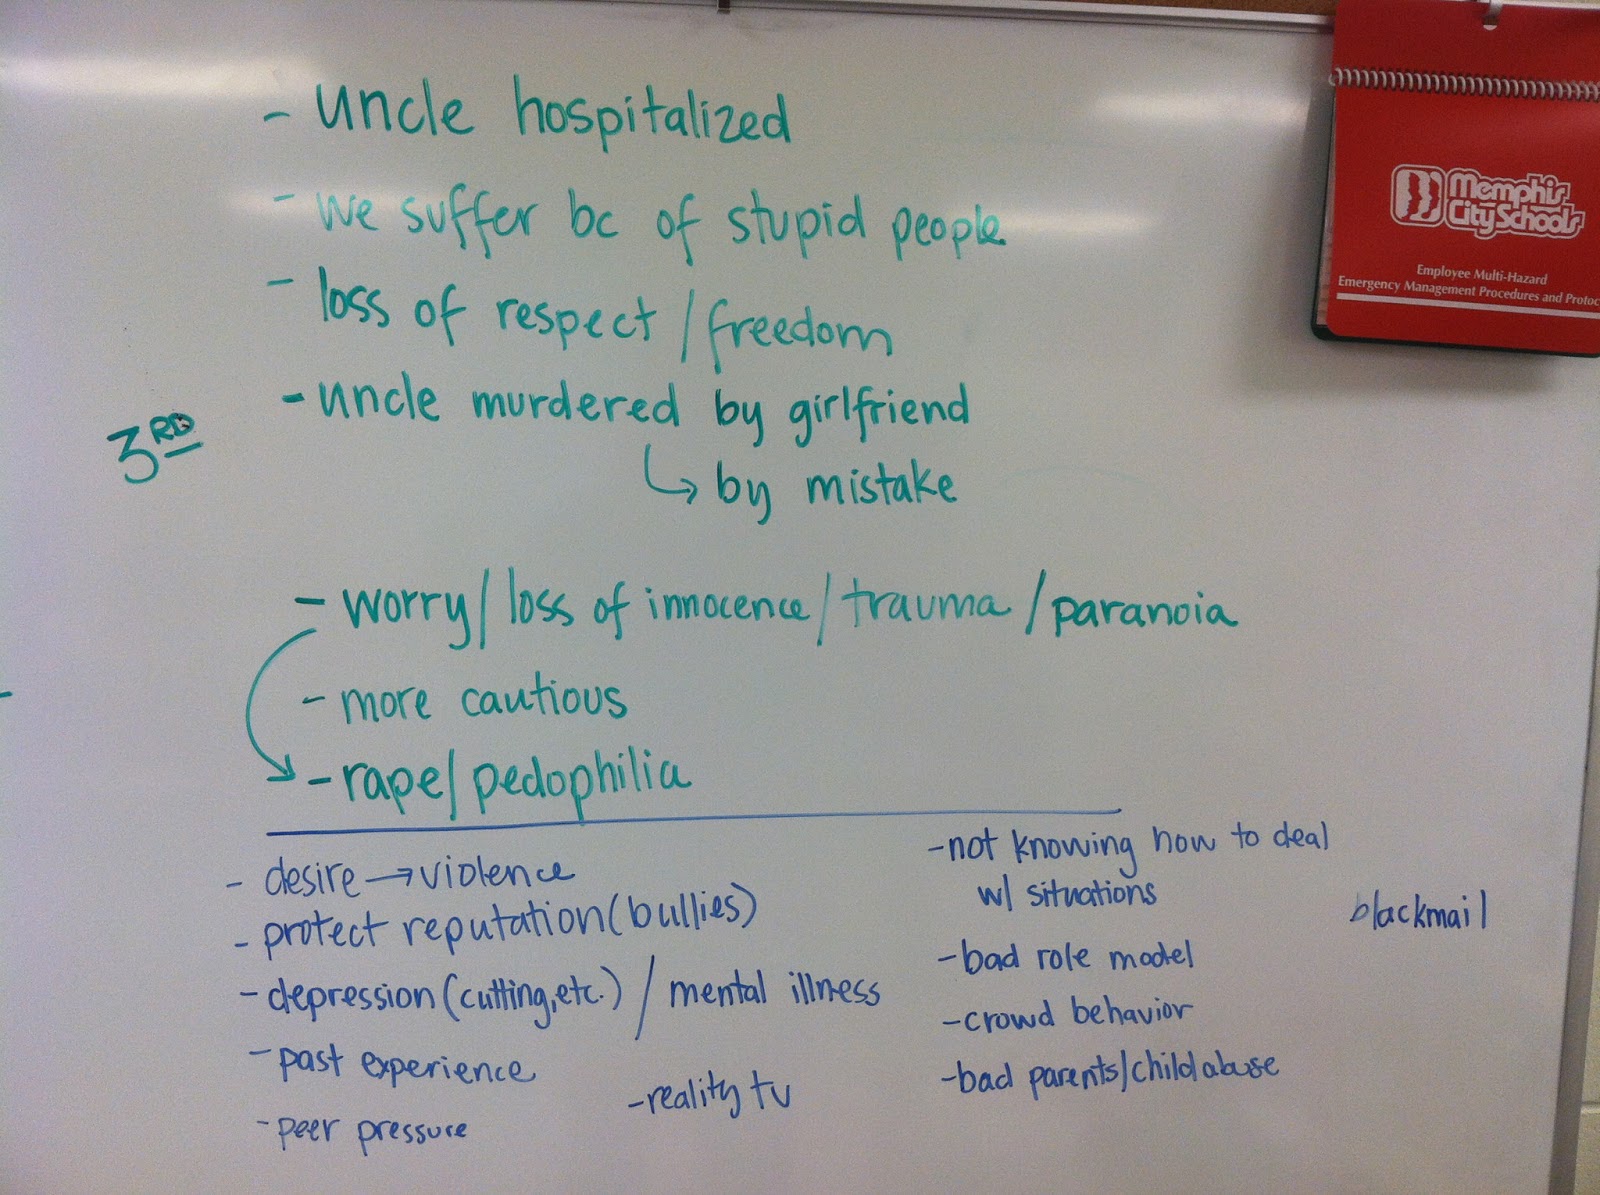 - uncle hospitalized
- we suffer bc of stupid people
- loss of respect / freedom
- uncle murdered by girlfriend
↳ by mistake
3RD
- worry / loss of innocence / trauma / paranoia
- more cautious
- rape / pedophilia
- desire → violence
- protect reputation (bullies)
- depression (cutting, etc.) / mental illness
- past experience
- peer pressure
- reality tv
- not knowing how to deal
w/ situations
- bad role model
- crowd behavior
- bad parents/child abuse
blackmail
Memphis
City Schools
Employee Multi-Hazard
Emergency Management Procedures and Protoc